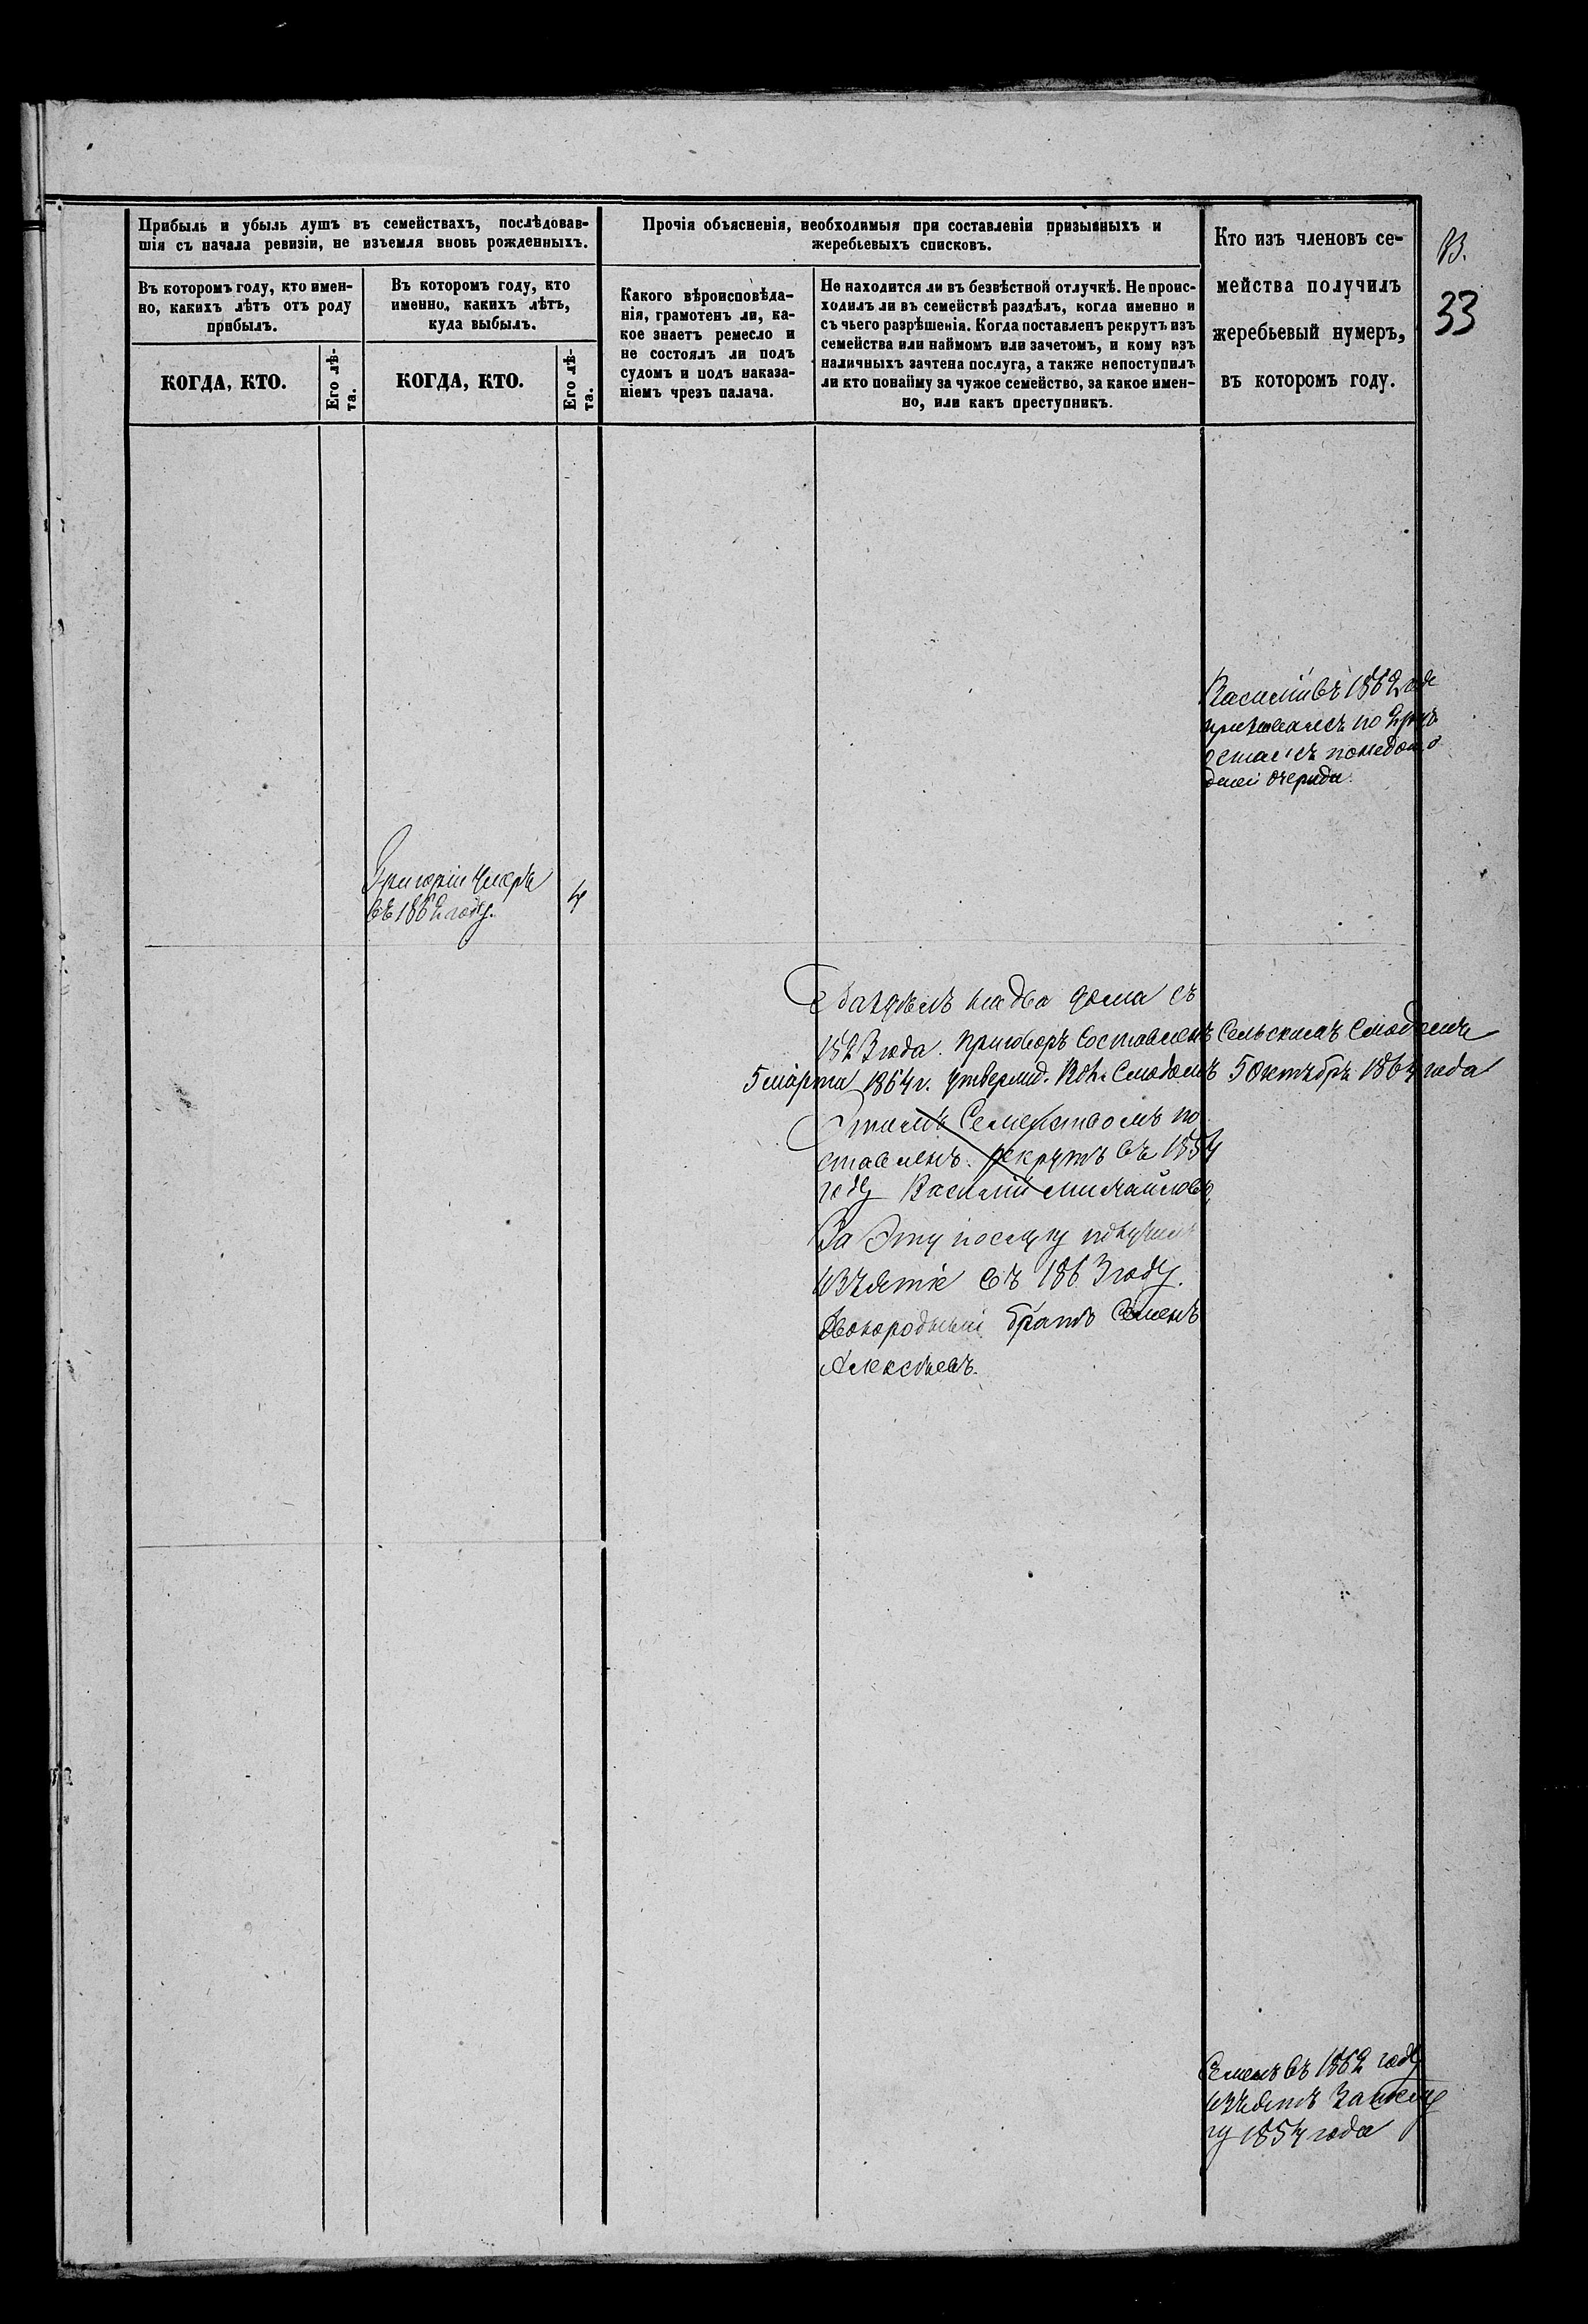 Прибыль и убыль душъ въ семействахъ, послѣдовав-
шія съ начала ревизіи, не изъемля вновь рожденныхъ.
Въ которомъ году, кто имен-
но, какихъ лѣтъ отъ роду
прибылъ.
КОГДА, КТО.
Его лѣ-
та.
Въ которомъ году, кто
именно, какихъ лѣтъ,
куда выбылъ.
КОГДА, КТО.
Его лѣ-
та.
Прочія объясненія, необходимыя при составленіи призывныхъ и
жеребьевыхъ списковъ.
Какого вѣроисповѣда-
нія, грамотенъ ли, ка-
кое знаетъ ремесло и
не состоялъ ли подъ
судомъ и подъ наказа-
ніемъ чрезъ палача.
Не находится ли въ безвѣстной отлучкѣ. Не проис-
ходилъ ли въ семействѣ раздѣлъ, когда именно и
съ чьего разрѣшенія. Когда поставленъ рекрутъ изъ
семейства или наймомъ или зачетомъ, и кому изъ
наличныхъ зачтена послуга, а также непоступилъ
ли кто понайму за чужое семейство, за какое имен-
но, или какъ преступникъ.
Кто изъ членовъ се-
мейства получилъ
жеребьевый нумеръ,
въ которомъ году.
33
Василій въ 1862 годе
призывался по
остался
очереди.
Григорій умеръ
въ 1862 году.
4
на два дома съ
года. Приговоръ Составленъ Сельскимъ Сходомъ
5 марта 1864 г. утвержд. Вол. Сходомъ 5 Октября 1864 года
Этимъ Семействомъ по
ставленъ. рекрутъ въ 1854
году Василій Михайловъ,
За Эту послугу получилъ
изъятіе въ 1863 году.
двоюродный братъ Семенъ
Алексѣевъ.
Семенъ въ 1862 году
изъятъ За послу
гу 1854 года